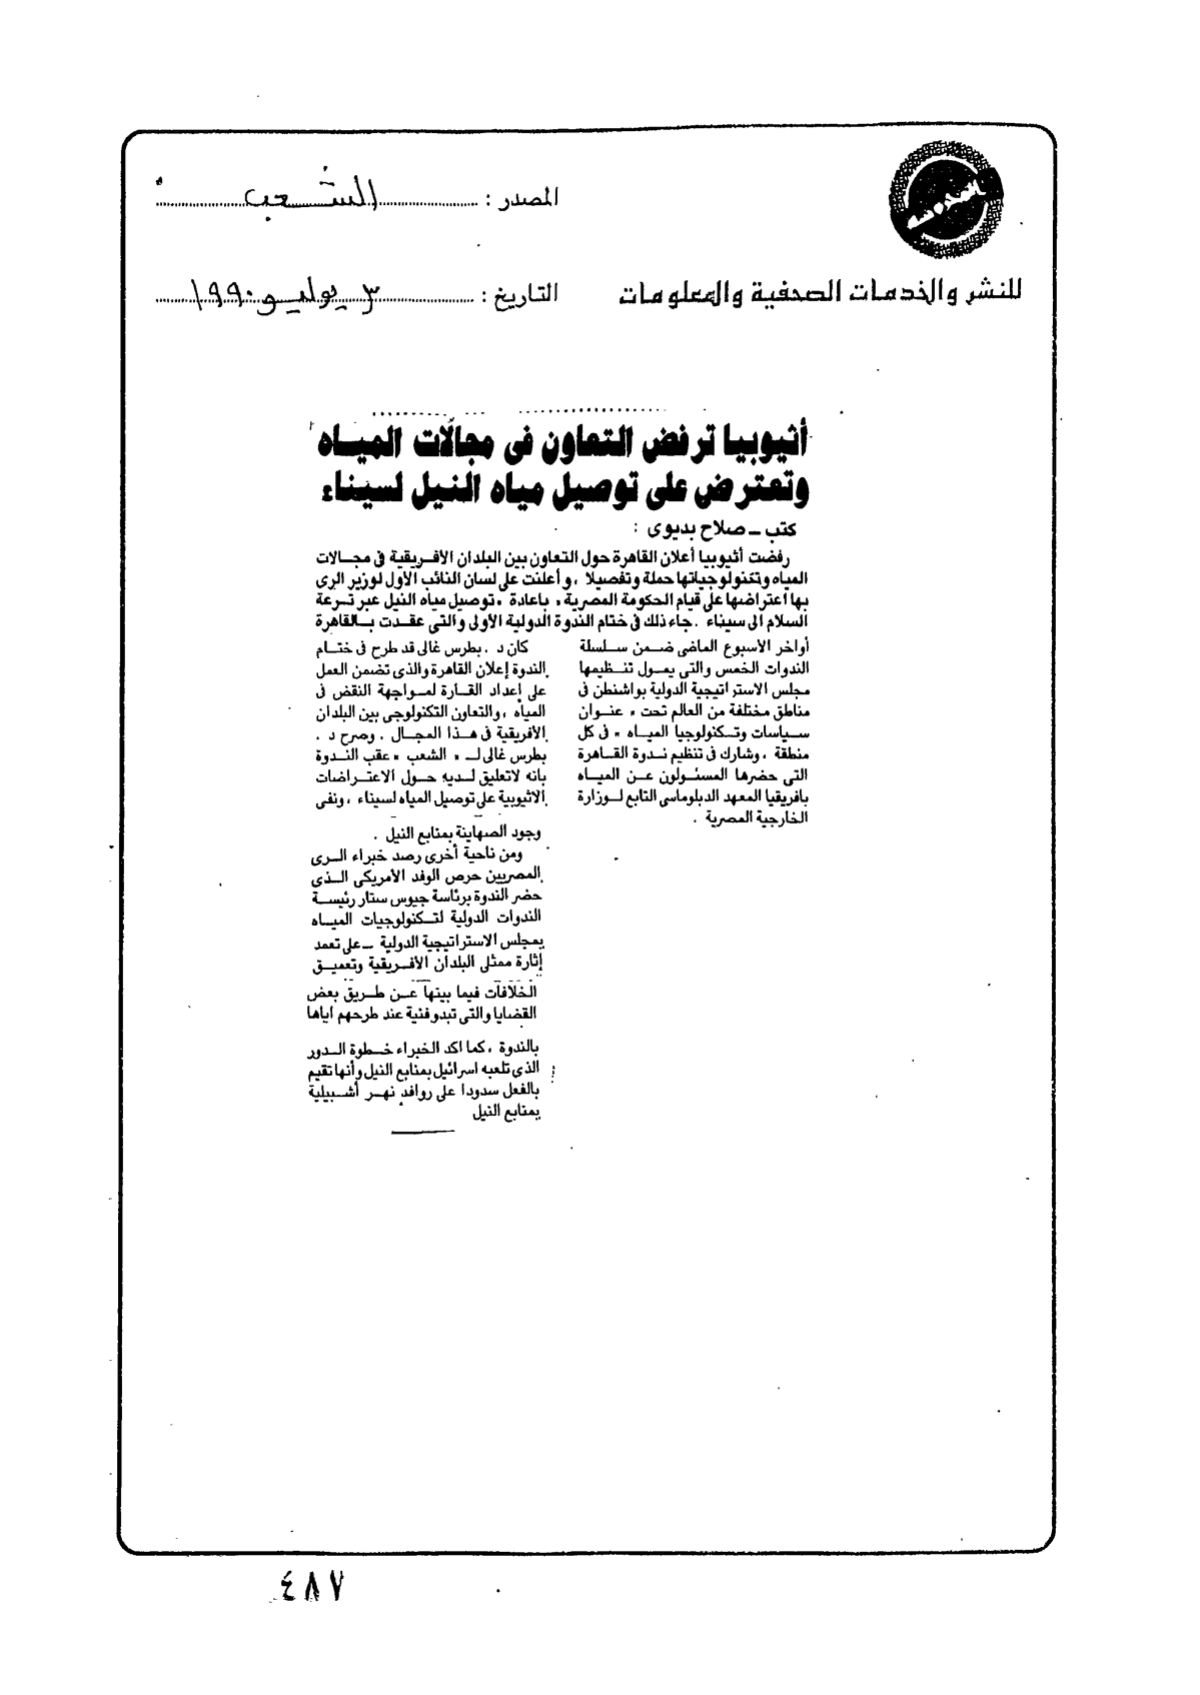 المصدر : الشعب
للنشر والخدمات الصحفية والمعلومات
التاريخ : ٣ يوليو ١٩٩٠
أثيوبيا ترفض التعاون فى مجالات الميـاه
وتعترض على توصيل مياه النيل لسيناء
كتب ــ صلاح بديوى :
رفضت أثيوبيا أعلان القاهرة حول التعاون بين البلدان الأفريقية فى مجـالات
المياه وتكنولوجياتها جملة وتفصيلا ، وأعلنت على لسان النائب الأول لوزير الرى
بها اعتراضها على قيام الحكومة المصرية ، باعادة ، توصيل مياه النيل عبر تـرعة
السلام الى سيناء . جاء ذلك فى ختام الندوة الدولية الأولى والتى عقـدت بـالقاهرة
أواخر الأسبوع الماضى ضـمن سـلسلة
الندوات الخمس والتى يمـول تنـظيمها
مجلس الاستراتيجية الدولية بواشنطن فى
مناطق مختلفة من العالم تحت « عنـوان
سـياسات وتـكنولوجيا الميـاه » فى كل
منطقة ، وشارك فى تنظيم نـدوة القـاهرة
التى حضرها المسئـولون عـن الميـاه
بافريقيا المعهد الدبلوماسى التابع لـوزارة
الخارجية المصرية .
كان د . بطرس غالى قد طرح فى ختـام
الندوة إعلان القاهرة والذى تضمن العمل
على إعداد القـارة لمـواجهة النقض فى
المياه ، والتعاون التكنولوجى بين البلدان
الأفريقية فى هـذا المجـال . وصرح د .
بطرس غالى لـ « الشعب » عقب النـدوة
بانه لاتعليق لـديه حـول الاعتـراضات
الاثيوبية على توصيل المياه لسيناء ، ونفى
وجود الصهاينة بمنابع النيل .
ومن ناحية أخرى رصد خبراء الـرى
المصريين حرص الوفد الأمريكى الـذى
حضر الندوة برئاسة جيوس ستار رئيسـة
الندوات الدولية لتـكنولوجيات الميـاه
بمجلس الاستراتيجية الدولية ــ على تعمد
إثارة ممثلى البلدان الأفـريقية وتعميـق
الخلافات فيما بينها عـن طـريق بعض
القضايا والتى تبدو فنية عند طرحهم اياها
بالندوة ، كما اكد الخبراء خـطوة الـدور
الذى تلعبه اسرائيل بمنابع النيل وأنها تقيم
بالفعل سدودا على روافد نهـر أشـبيلية
بمنابع النيل
٤٨٧